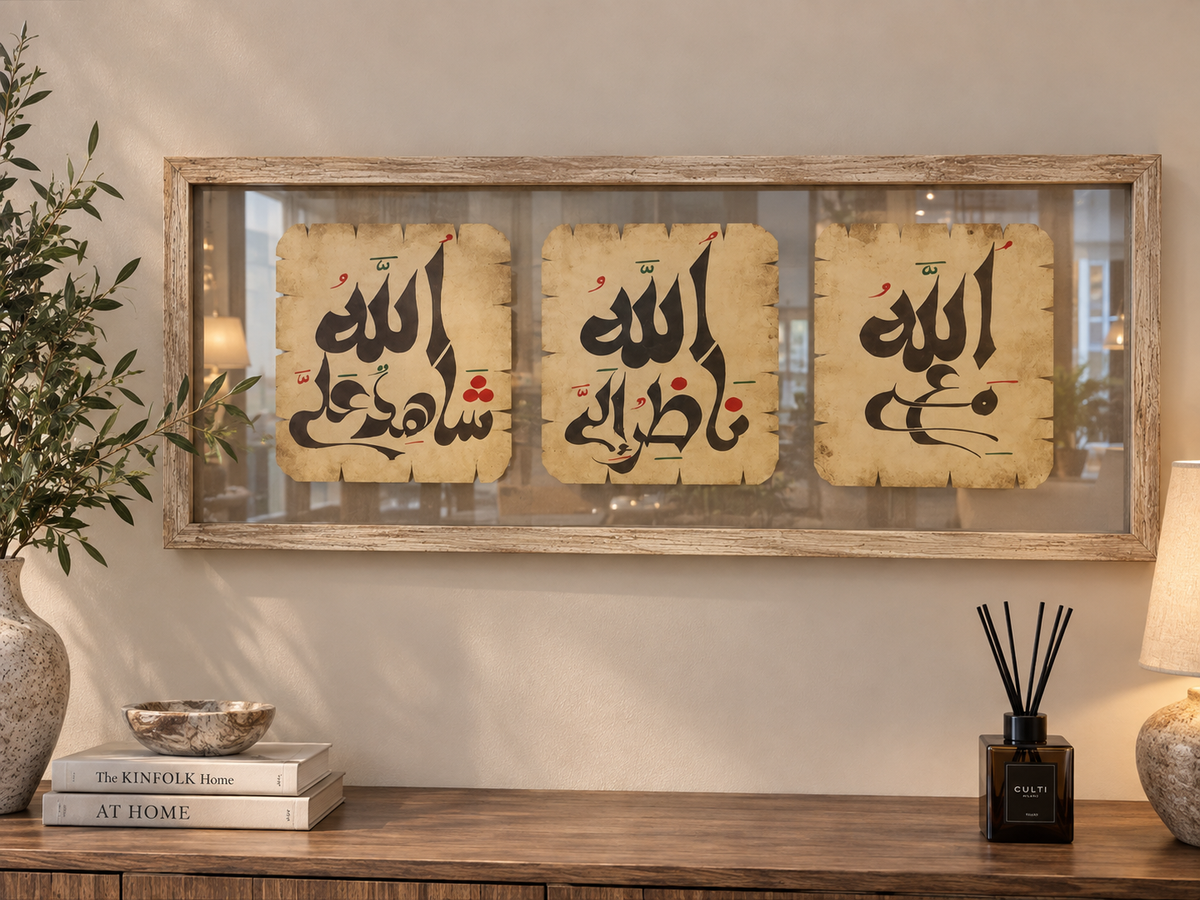 الله
معي
الله
ناظر إلي
الله
شاهد علي
The KINFOLK Home
AT HOME
CULTI
MILANO